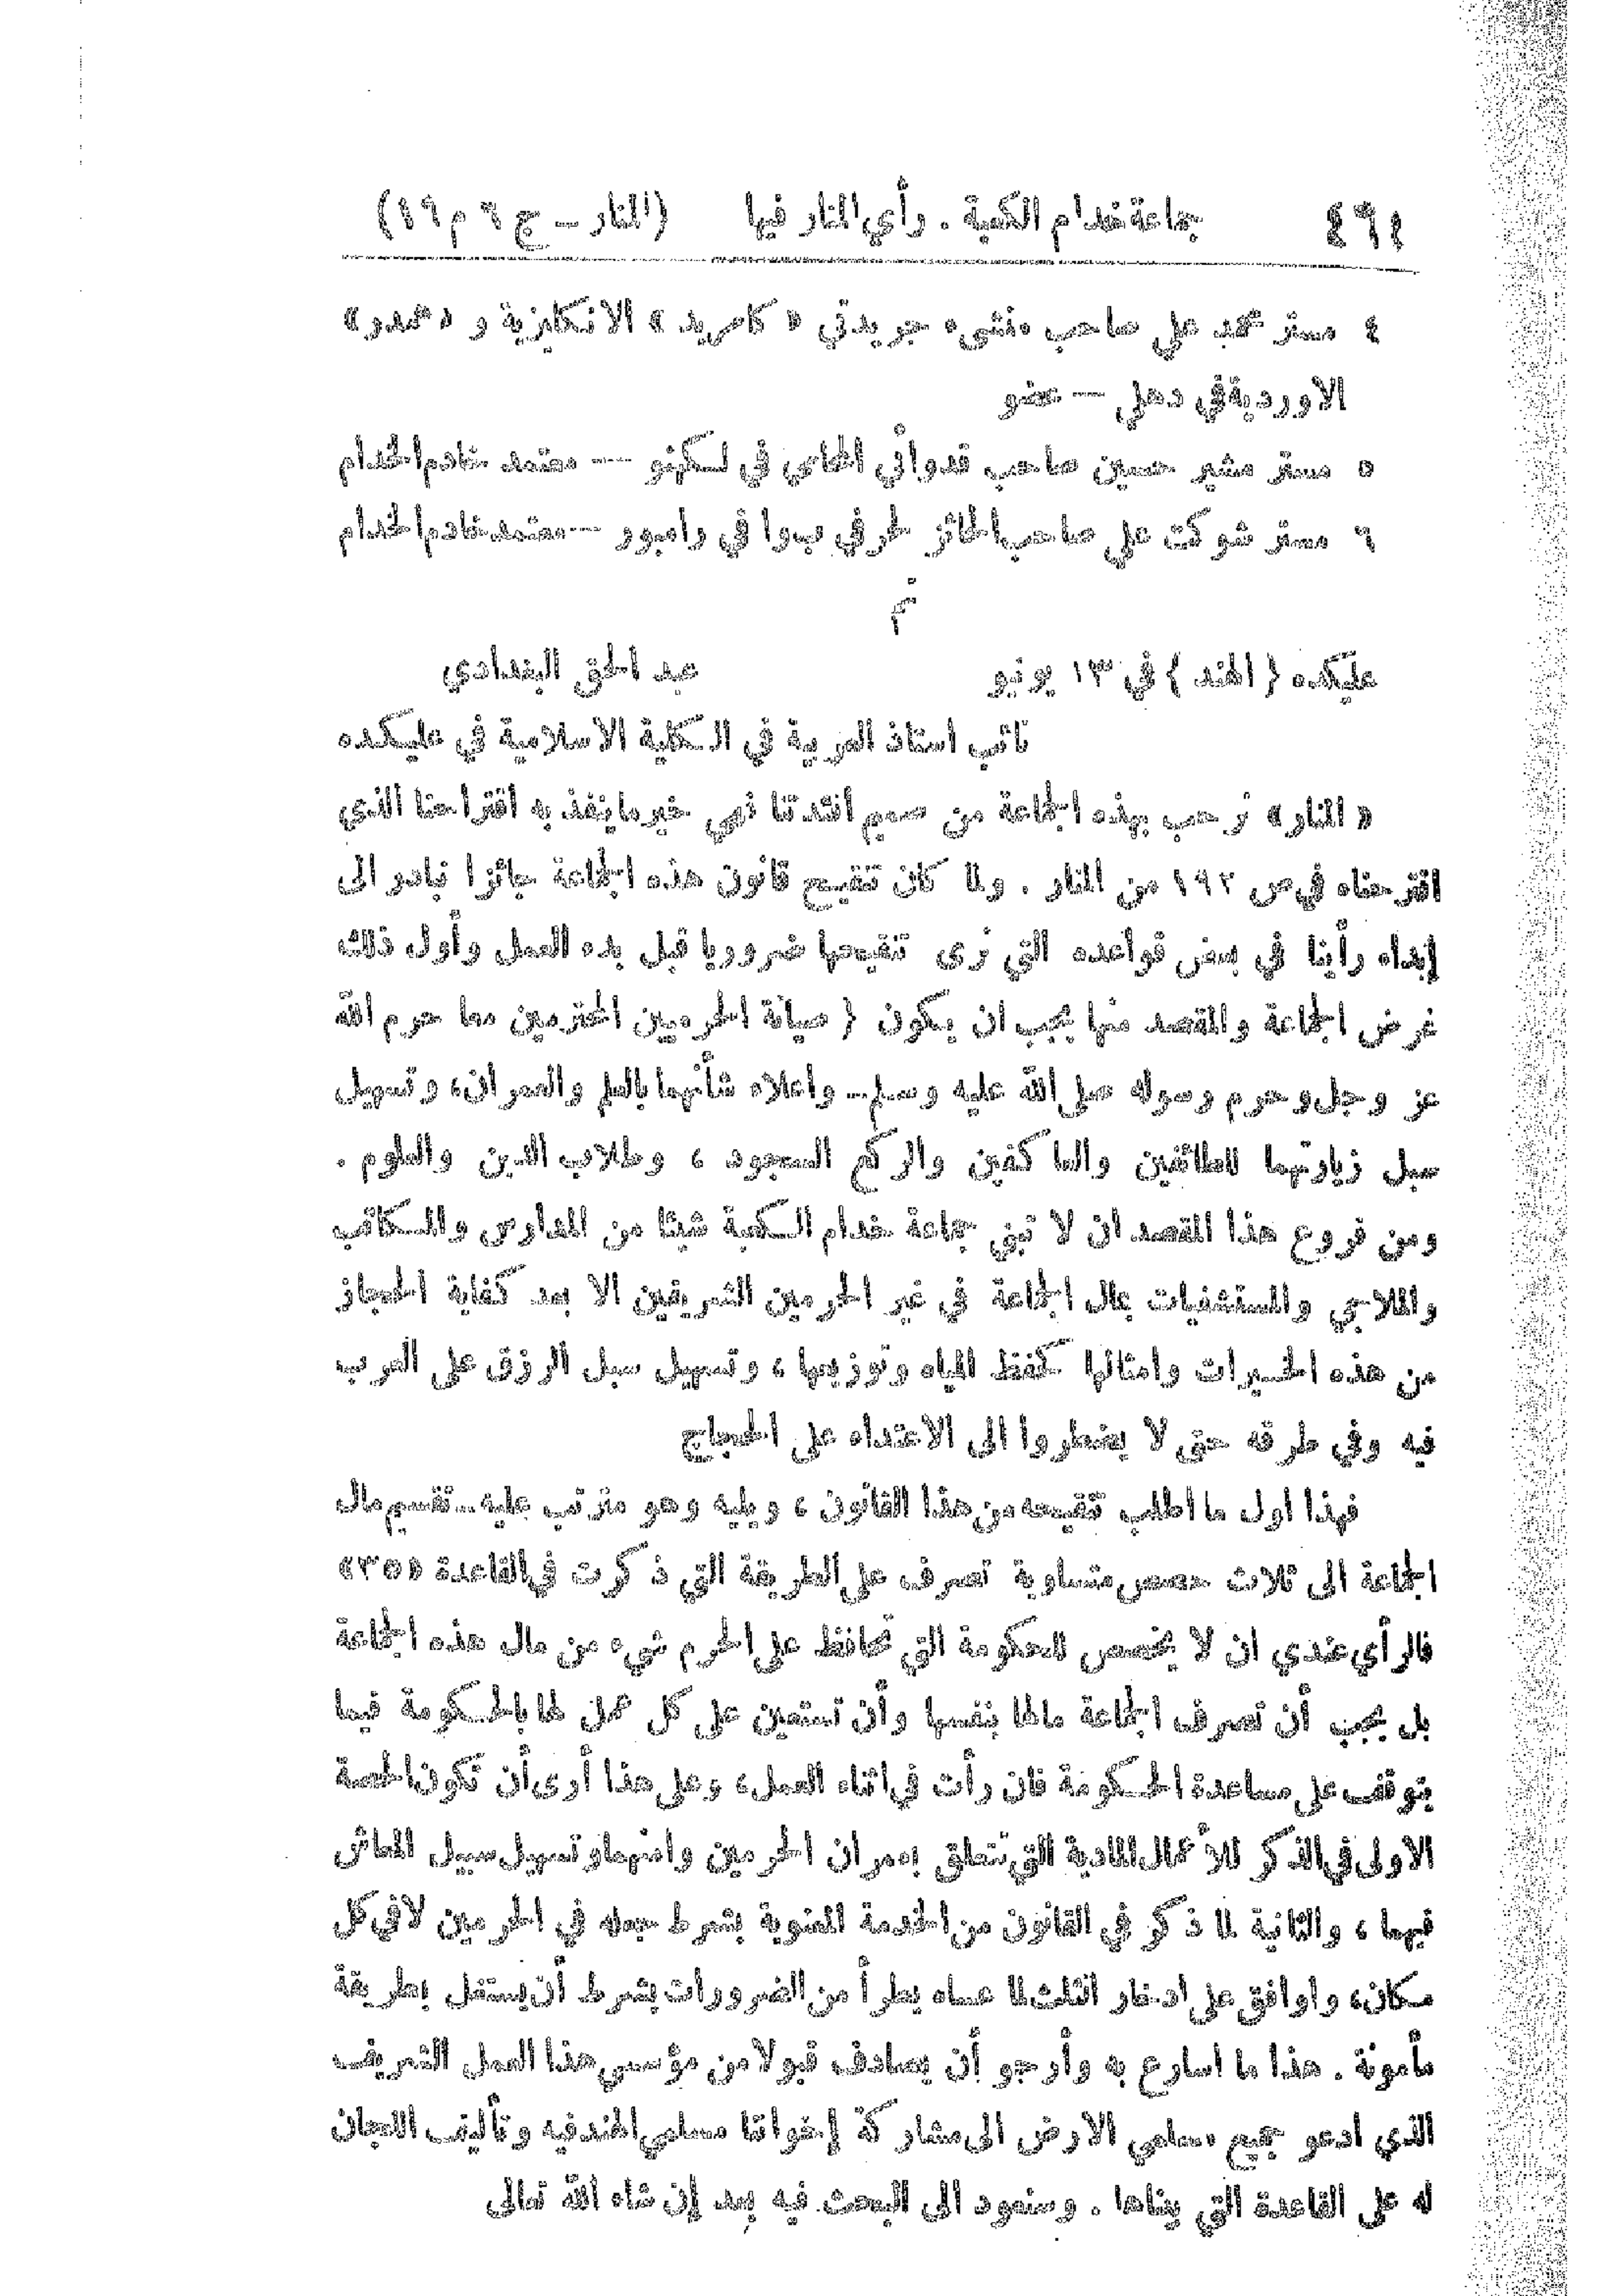 ٤٦٤ جماعة خدام الكعبة . رأي المنار فيها (المنار – ج ٦ م ١٦)
٤ مستر محمد علي صاحب منشىء جريدتي « كامريد » الانكليزية و « همدرد»
الاوردية في دهلي — عضو
٥ مستر مشير حسين صاحب قدوائي المحامي في لكهنو — معتمد خادم الخدام
٦ مستر شوكت علي صاحب الحائز في رامبور — معتمد خادم الخدام
عليكده ( الهند ) في ١٣ يونيو عبد الحق البغدادي
نائب استاذ العربية في الكلية الاسلامية في عليكده
« المنار» نرحب بهذه الجماعة من صميم افئدتنا فهي خير ما ينفذ به اقتراحنا الذي
اقترحناه في ص ١٩٢ من المنار . ولما كان تنقيح قانون هذه الجماعة جائزا نبادر الى
إبداء رأينا في بعض قواعده التي نرى تنقيحها ضروريا قبل بدء العمل وأول ذلك
غرض الجماعة والمقصد منها يجب ان يكون ( صيانة الحرمين المحترمين مما حرم الله
عز وجل وحرم رسوله صلى الله عليه وسلم – واعلاء شأنهما بالعلم والعمران، وتسهيل
سبل زيارتهما للطائفين والعاكفين والركع السجود ، وطلاب الدين والعلوم .
ومن فروع هذا المقصد ان لا تبني جماعة خدام الكعبة شيئا من المدارس والمكاتب
والملاجي والمستشفيات بمال الجماعة في غير الحرمين الشريفين الا بعد كفاية الحجاز
من هذه الخيرات وامثالها كحفظ المياه وتوزيعها ، وتسهيل سبل الرزق على العرب
فيه وفي طرقه حتى لا يضطروا الى الاعتداء على الحجاج
فهذا اول ما اطلب تنقيحه من هذا القانون ، ويليه وهو مترتب عليه – تقسيم مال
الجماعة الى ثلاث حصص متساوية تصرف على الطريقة التي ذكرت في القاعدة «٣٥»
فالرأي عندي ان لا يخصص للحكومة التي تحافظ على الحرم شيء من مال هذه الجماعة
بل يجب أن تصرف الجماعة مالها بنفسها وأن تستعين على كل عمل لها بالحكومة فيما
يتوقف على مساعدة الحكومة فان رأت في اثناء العمل، وعلى هذا أرى أن تكون الحصة
الاولى في الذكر للأعمال المادية التي تتعلق بعمران الحرمين وامنهما وتسهيل سبيل المعاش
فيهما ، والثانية لما ذكر في القانون من الخدمة المعنوية بشرط جعله في الحرمين لا في كل
مكان، واوافق على ادخار الثلث لما عساه يطرأ من الضرورات بشرط أن يستغل بطريقة
مأمونة . هذا ما اسارع به وأرجو أن يصادف قبولا من مؤسسي هذا العمل الشريف
الذي ادعو جميع مسلمي الارض الى مشاركة إخواننا مسلمي الهند فيه وتأليف اللجان
له على القاعدة التي بيناها . وسنعود الى البحث فيه بعد إن شاء الله تعالى